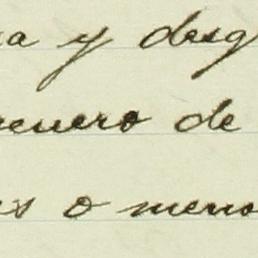 a y desg
enero de
es o meno